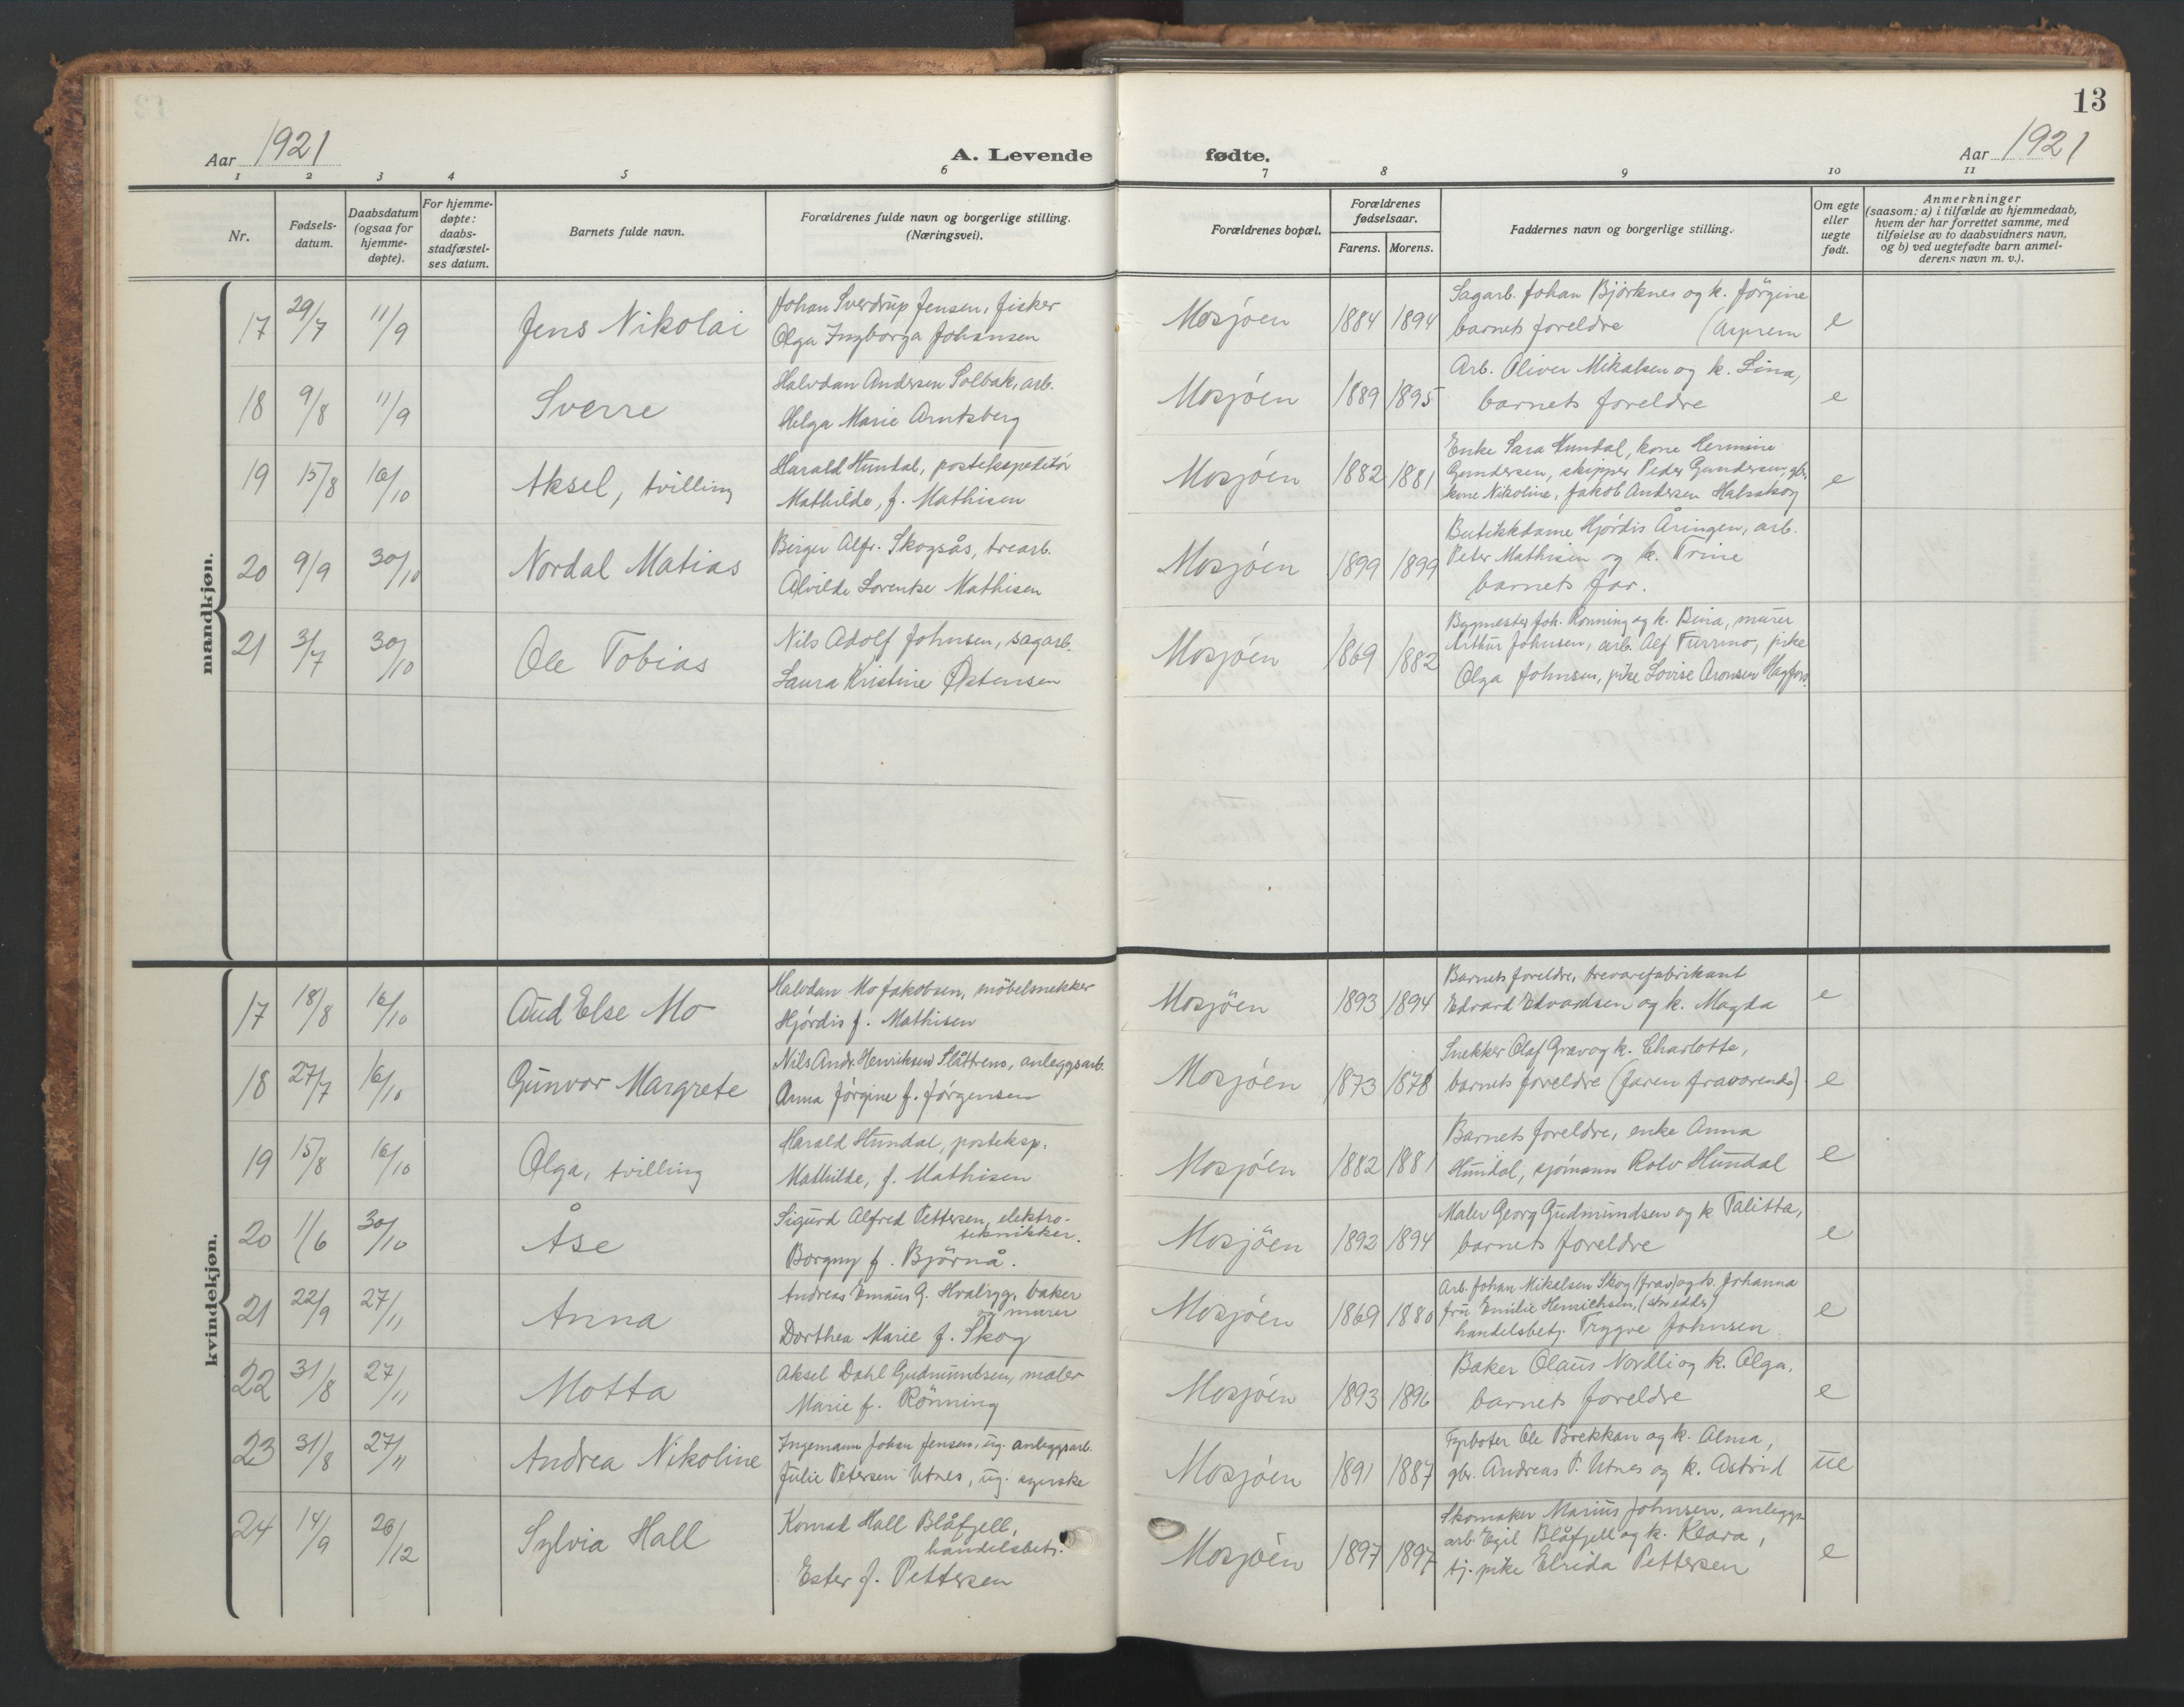 13
Aar 1921
A. Levende fødte.
Aar 1921
1 2 3 4 5 6 7 8 9 10 11
Nr.
Fødsels-
datum.
Daabsdatum
(ogsaa for
hjemme-
døpte).
For hjemme-
døpte:
daabs-
stadfæstel-
ses datum.
Barnets fulde navn.
Forældrenes fulde navn og borgerlige stilling.
(Næringsvei).
Forældrenes bopæl.
Forældrenes
fødselsaar.
Farens. Morens.
Faddernes navn og borgerlige stilling.
Om egte
eller
uegte
født.
Anmerkninger
(saasom: a) i tilfælde av hjemmedaab,
hvem der har forrettet samme, med
tilføielse av to daabsvidners navn,
og b) ved uegtefødte barn anmel-
derens navn m. v.).
mandkjøn.
17 29/7 11/9 Jens Nikolai
Johan Sverdrup Jensen, fisker
Olga Ingborga Johansen
Mosjøen 1884 1894
Sagarb. Johan Björknes og k. Jörgine
barnets foreldre (Asprem
e
18 9/8 11/9 Sverre
Halvdan Andersen Solbak, arb.
Helga Marie Arntsberg
Mosjøen 1889 1895
Arb. Oliver Mikalsen og k. Lina,
barnets foreldre
e
19 15/8 16/10 Aksel, tvilling
Harald Hundal, postekspeditör
Mathilde, f. Mathisen
Mosjøen 1882 1881
Enke Sara Hundal, kone Hermine
Gundersen, skipper Peder Gundersen, gbr.
kone Nikoline, Jakob Andersen Halsskog
e
20 9/9 30/10 Nordal Matias
Birger Alfr. Skogsås, trearb.
Alvilde Lorentse Mathisen
Mosjøen 1899 1899
Butikkdame Hjördis Åringen, arb.
Peter Mathisen og k. Trine
barnets far.
21 3/7 30/10 Ole Tobias
Nils Adolf Johnsen, sagarb.
Laura Kristine Østensen
Mosjøen 1869 1882
Bygmester Joh. Rönning og k. Bina, murer
Arthur Johnsen, arb. Alf Furrmo, pike
Olga Johnsen, pike Lovise Aronsen Hagfors.
kvindekjøn.
17 18/8 16/10 Aud Else Mo
Halvdan Mo Jakobsen, möbelsnekker
Hjördis f. Mathisen
Mosjøen 1893 1894
Barnets foreldre, trevarefabrikant
Edvard Edvardsen og k. Magda
e
18 27/7 16/10 Gunvor Margrete
Nils Andr. Henriksen Slåttrens, anleggsarb.
Anna Jörgine f. Jörgensen
Mosjøen 1873 1878
Snekker Olaf Grav og k. Charlotte,
barnets foreldre (faren fraværende)
e
19 15/8 16/10 Olga, tvilling
Harald Hundal, posteksp.
Mathilde, f. Mathisen
Mosjøen 1882 1881
Barnets foreldre, enke Anna
Hundal, sjömann Rolv Hundal
e
20 1/6 30/10 Åse
Sigurd Alfred Pettersen, elektro-
teknikker.
Borgny f. Björnå.
Mosjøen 1892 1894
Maler Georg Gudmundsen og k Talitta,
barnets foreldre
e
21 22/9 27/11 Anna
Andreas Emaus G. Hvalryg, baker
og murer
Dorthea Marie f. Skog
Mosjøen 1869 1880
Arb. Johan Mikalsen Skog (frav) og k. Johanna
fru Emilie Henrichsen,
handelsbetj. Trygve Johnsen
e
22 31/8 27/11 Motta
Aksel Dahl Gudmundsen, maler
Marie f. Rönning
Mosjøen 1893 1896
Baker Olaus Nordli og k. Olga,
barnets foreldre
e
23 31/8 27/11 Andrea Nikoline
Ingemann Johan Jensen, ug. anleggsarb.
Julie Petersen Utnes, ug. syerske
Mosjøen 1891 1887
Fyrböter Ole Brekkan og k. Alma,
gbr. Andreas P. Utnes og k. Astrid
ue
24 14/9 26/12 Sylvia Hall
Konrad Hall Blåfjell,
handelsbetj.
Ester f. Pettersen
Mosjøen 1897 1897
Skomaker Marius Johnsen, anleggs-
arb. Egil Blåfjell og k. Klara,
tj. pike Elrida Pettersen
e